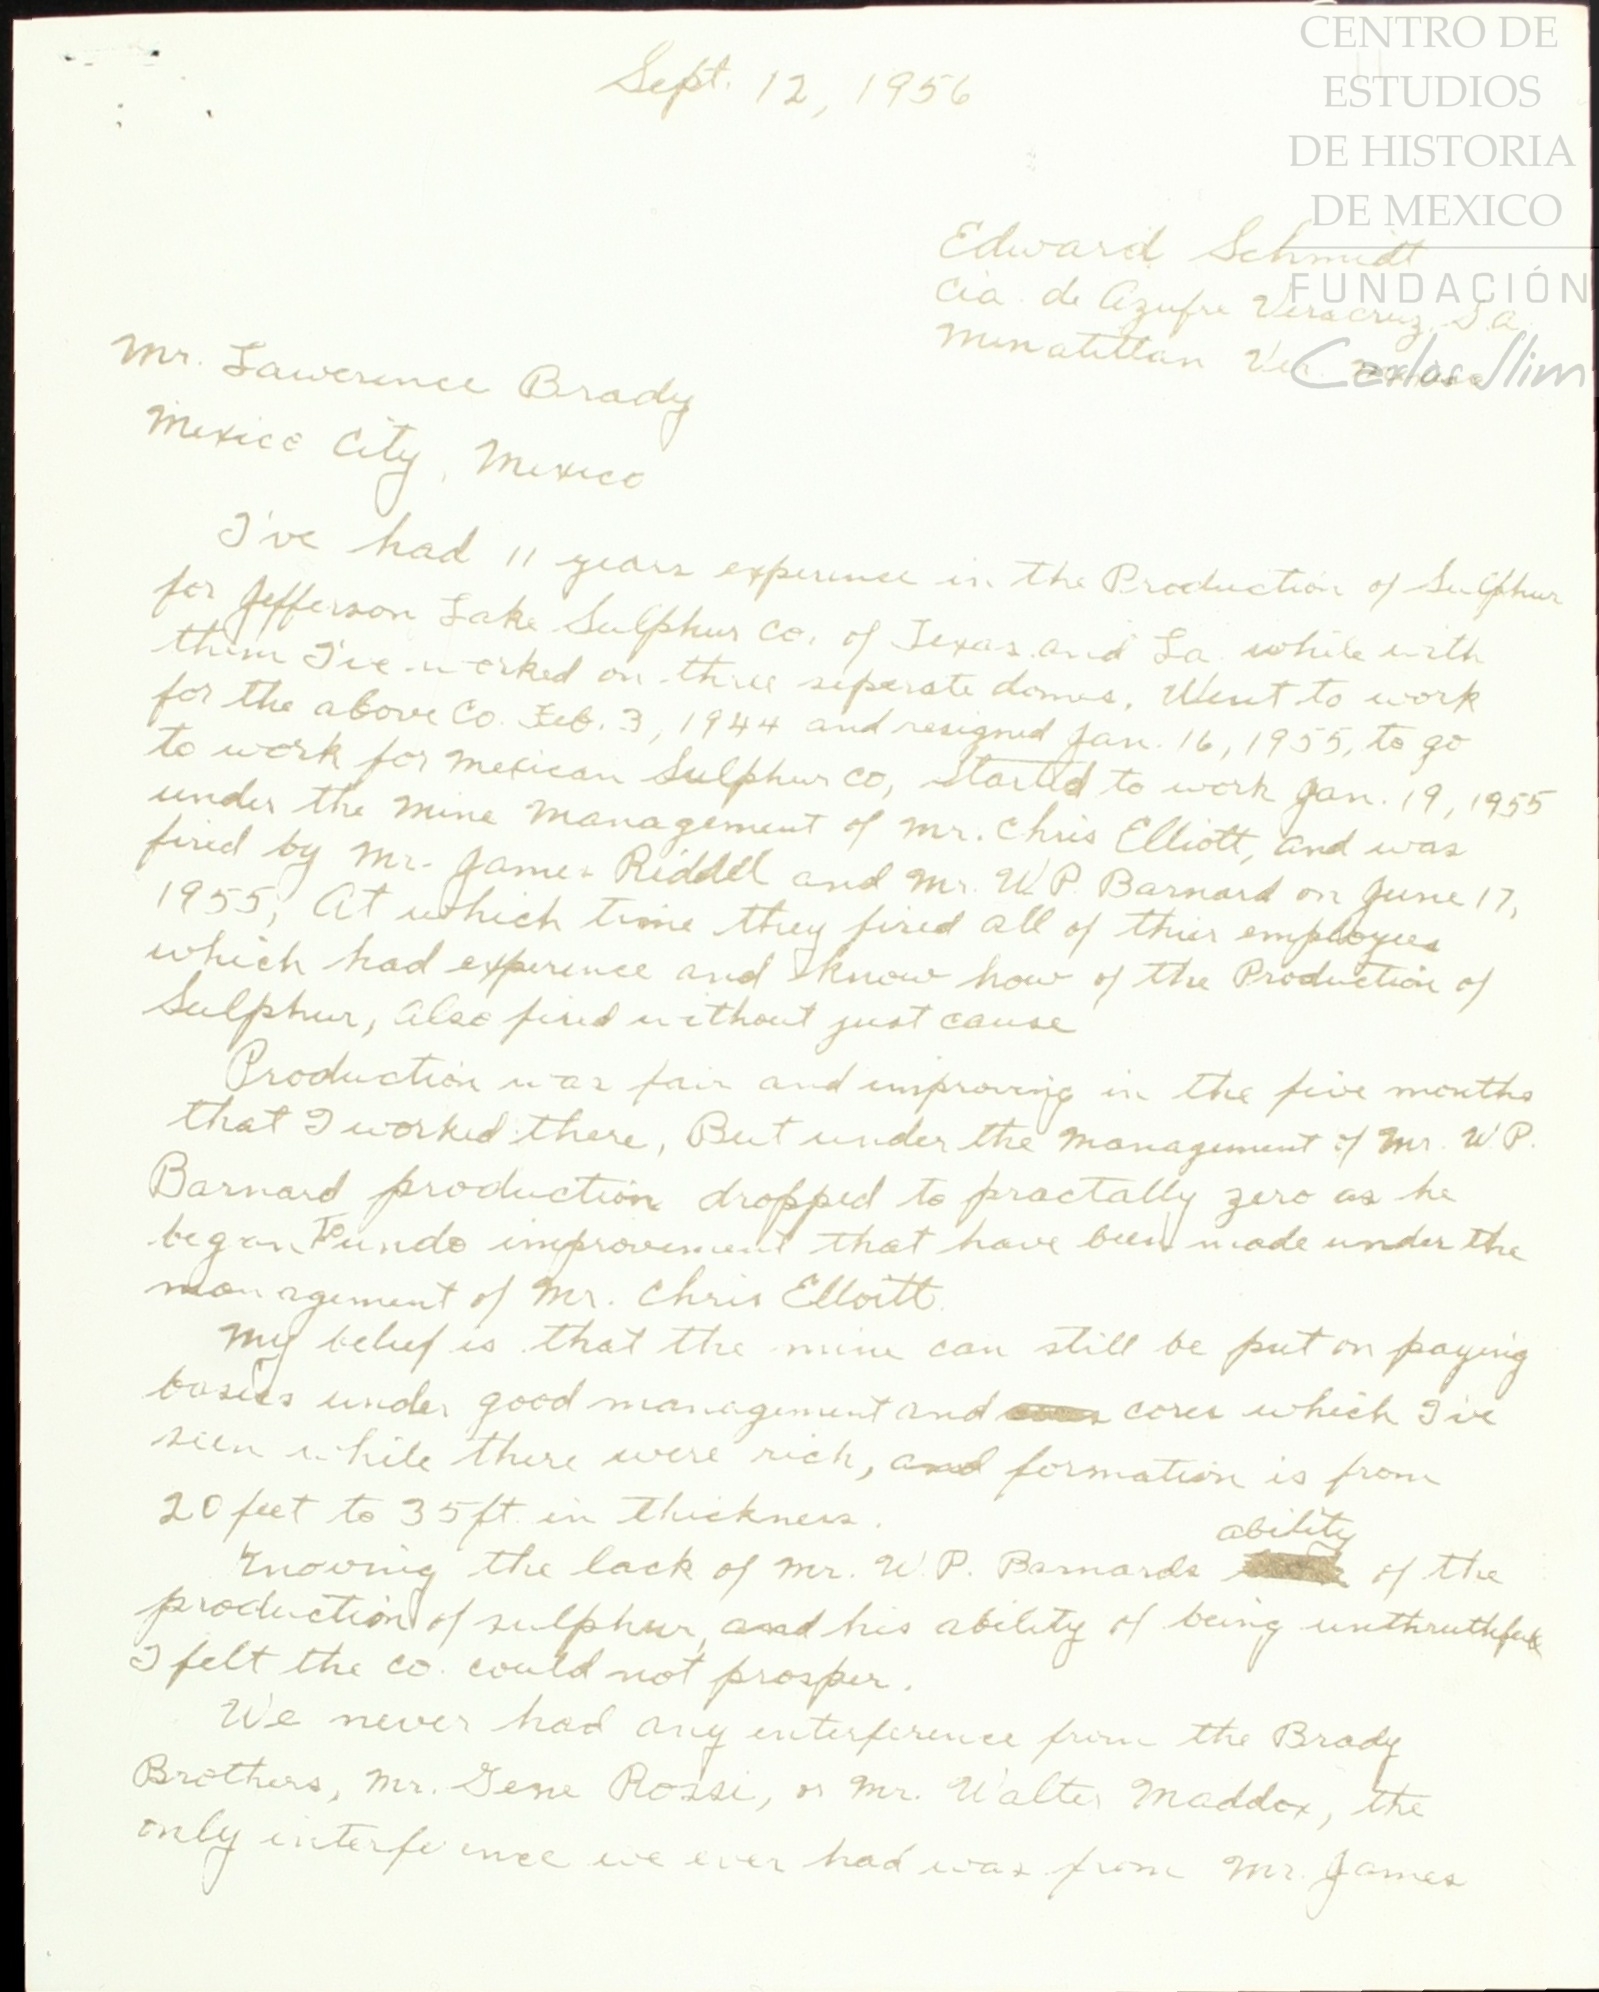 Sept. 12, 1956
CENTRO DE
ESTUDIOS
DE HISTORIA
DE MEXICO
FUNDACIÓN
Carlos Slim
Edward Schmidt
Cia. de Azufre Veracruz, S.A.
Minatitlan Ver.
Mr. Lawerence Brady
Mexico City, Mexico
I've had 11 years experience in the Production of Sulphur
for Jefferson Lake Sulphur Co. of Texas and La. while with
them I've worked on three seperate domes. Went to work
for the above Co. Feb. 3, 1944 and resigned Jan. 16, 1955, to go
to work for Mexican Sulphur Co, started to work Jan. 19, 1955
under the mine management of Mr. Chris Elliott, and was
fired by Mr. James Riddell and Mr. W.P. Barnard on June 17,
1955, At which time they fired all of thier employees
which had experence and know how of the Production of
Sulphur, also fired without just cause
Production was fair and improving in the five months
that I worked there, But under the management of Mr. W.P.
Barnard production dropped to practally zero as he
began to undo improvement that have been made under the
management of Mr. Chris Elloitt.
My belief is that the mine can still be put on paying
basies under good management and cores which I've
seen while there were rich, and formation is from
20 feet to 35 ft. in thickness.
Knowing the lack of Mr. W.P. Barnards ability of the
production of sulphur, and his ability of being unthruthful
I felt the co. could not prosper.
We never had any interference from the Brady
Brothers, Mr. Gene Rossi, or Mr. Walter Maddox, the
only interference we ever had was from Mr. James